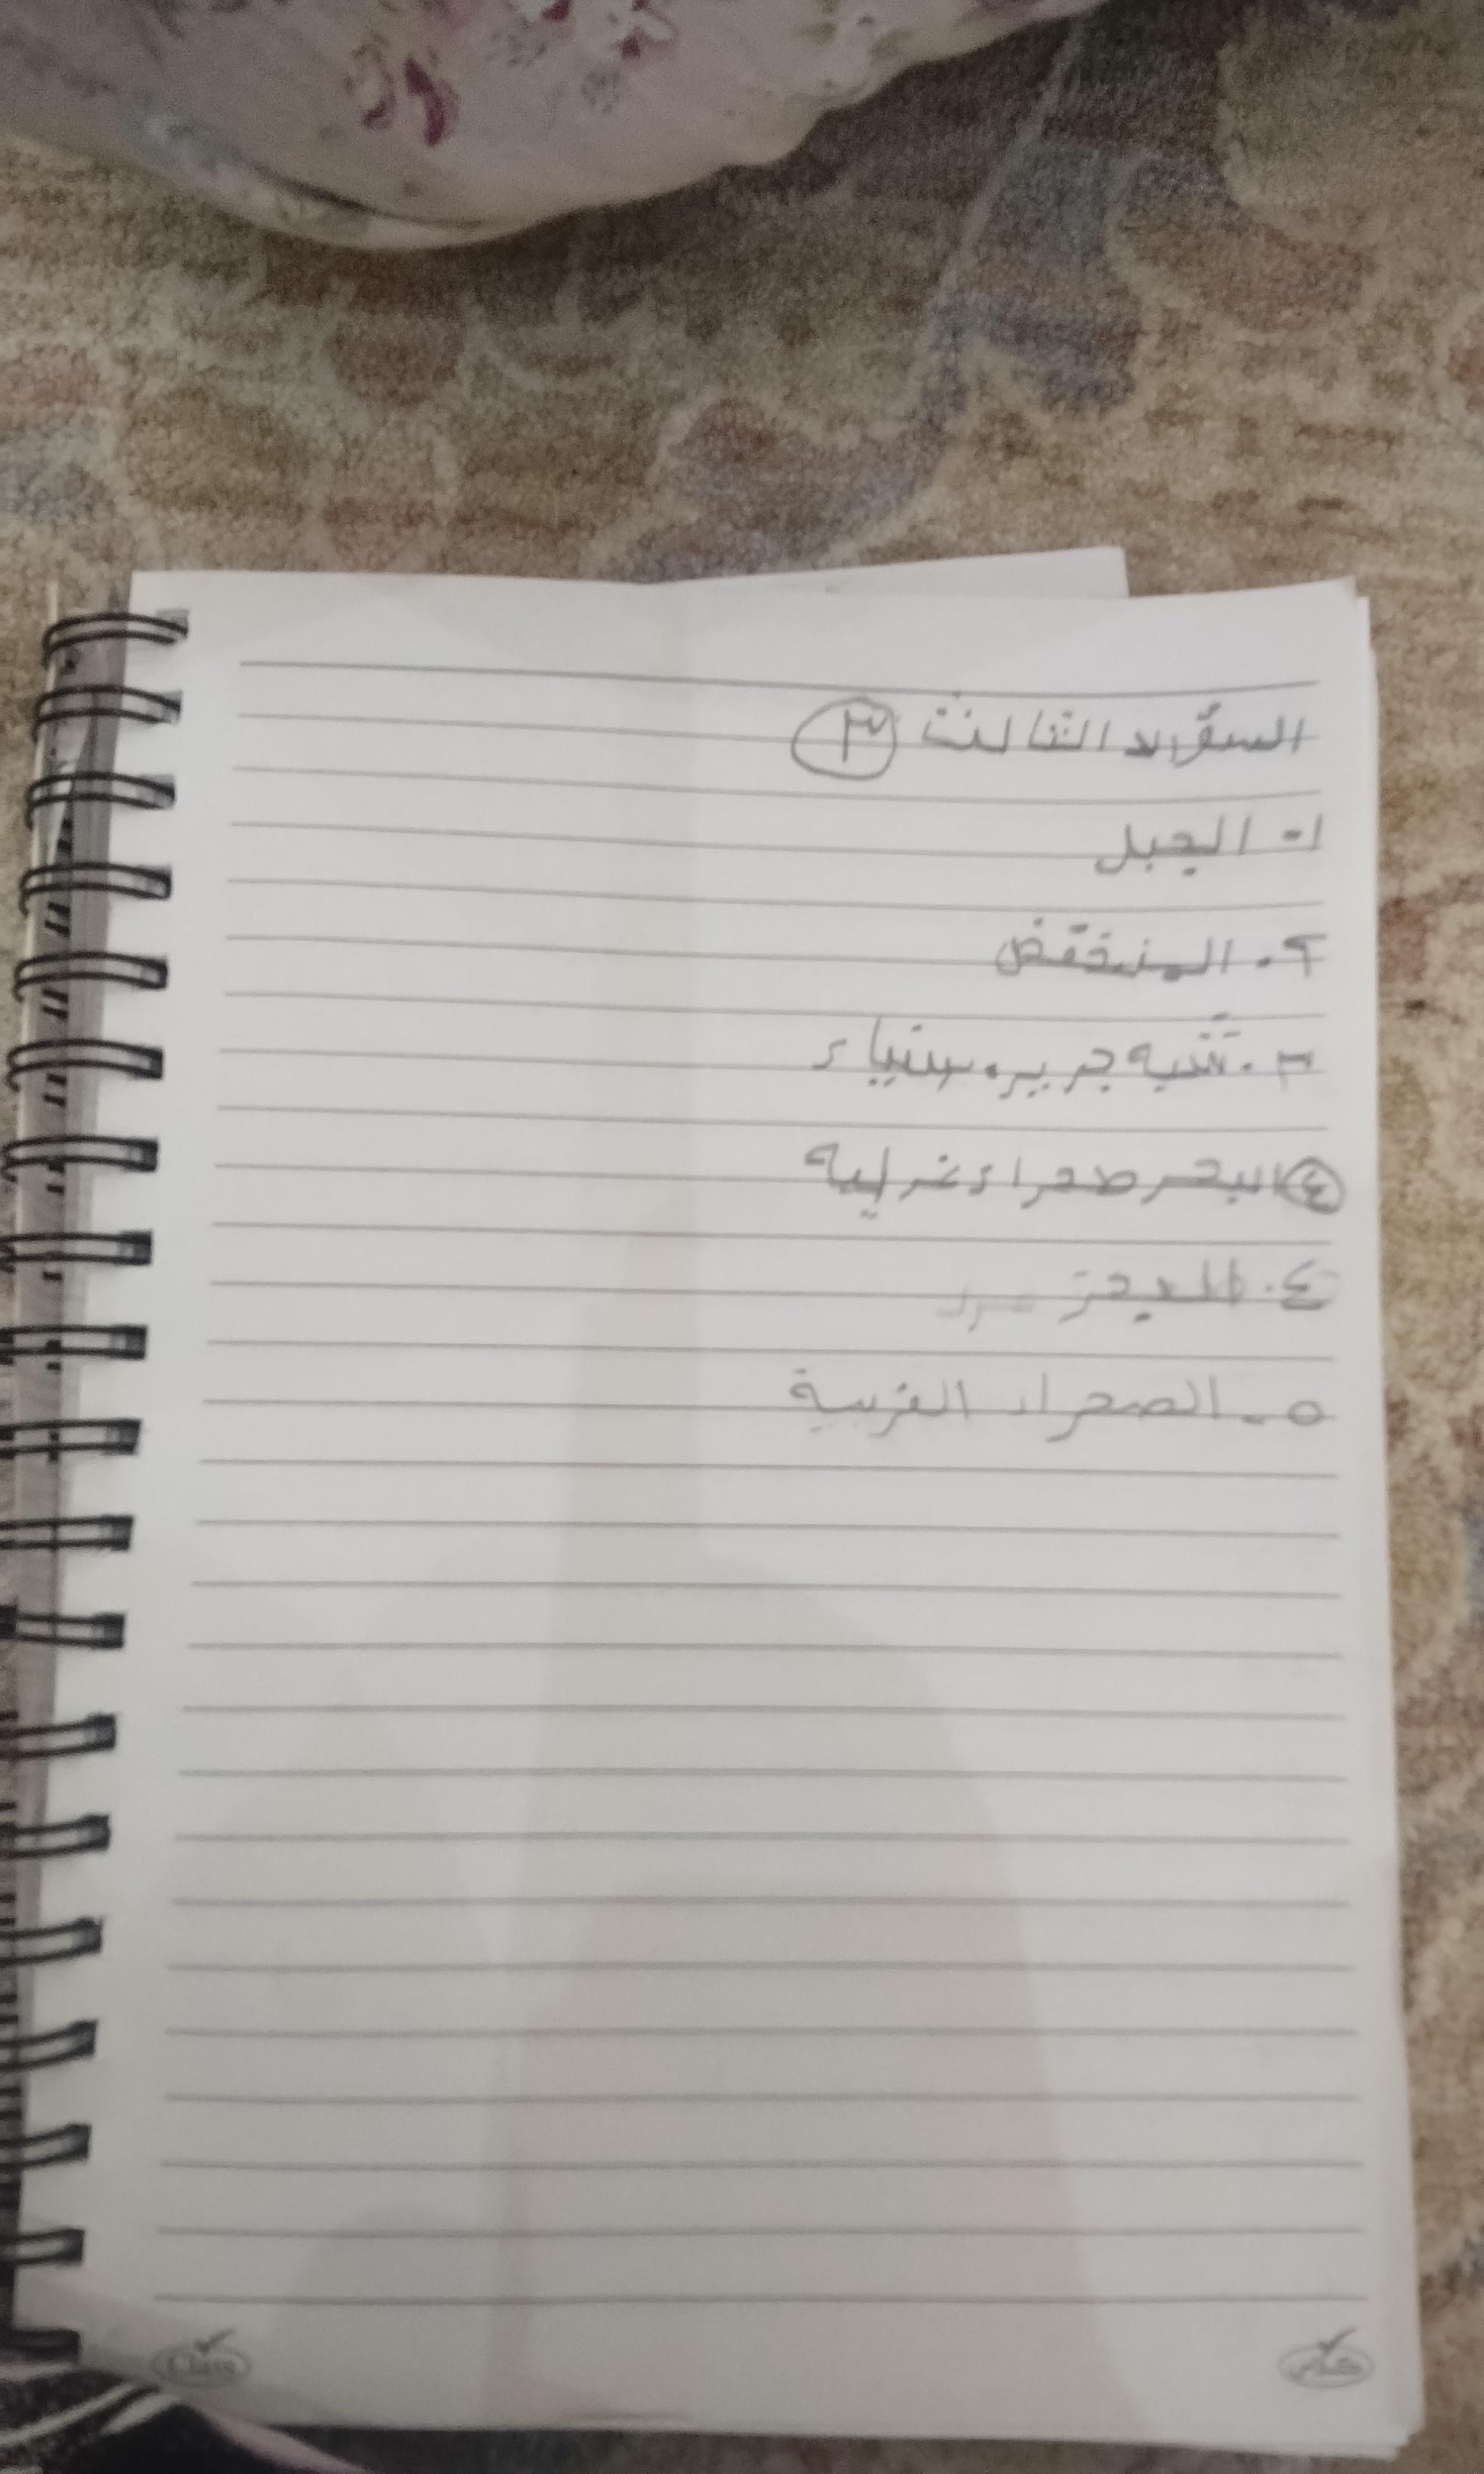 السؤال الثالث ٣
١- الجبل
٢- المنخفض
٣- شبه جزيره سيناء
٤ البحر صحراء غرابيه
٤- البحر
٥- الصحراء الغربية
Class كلاس